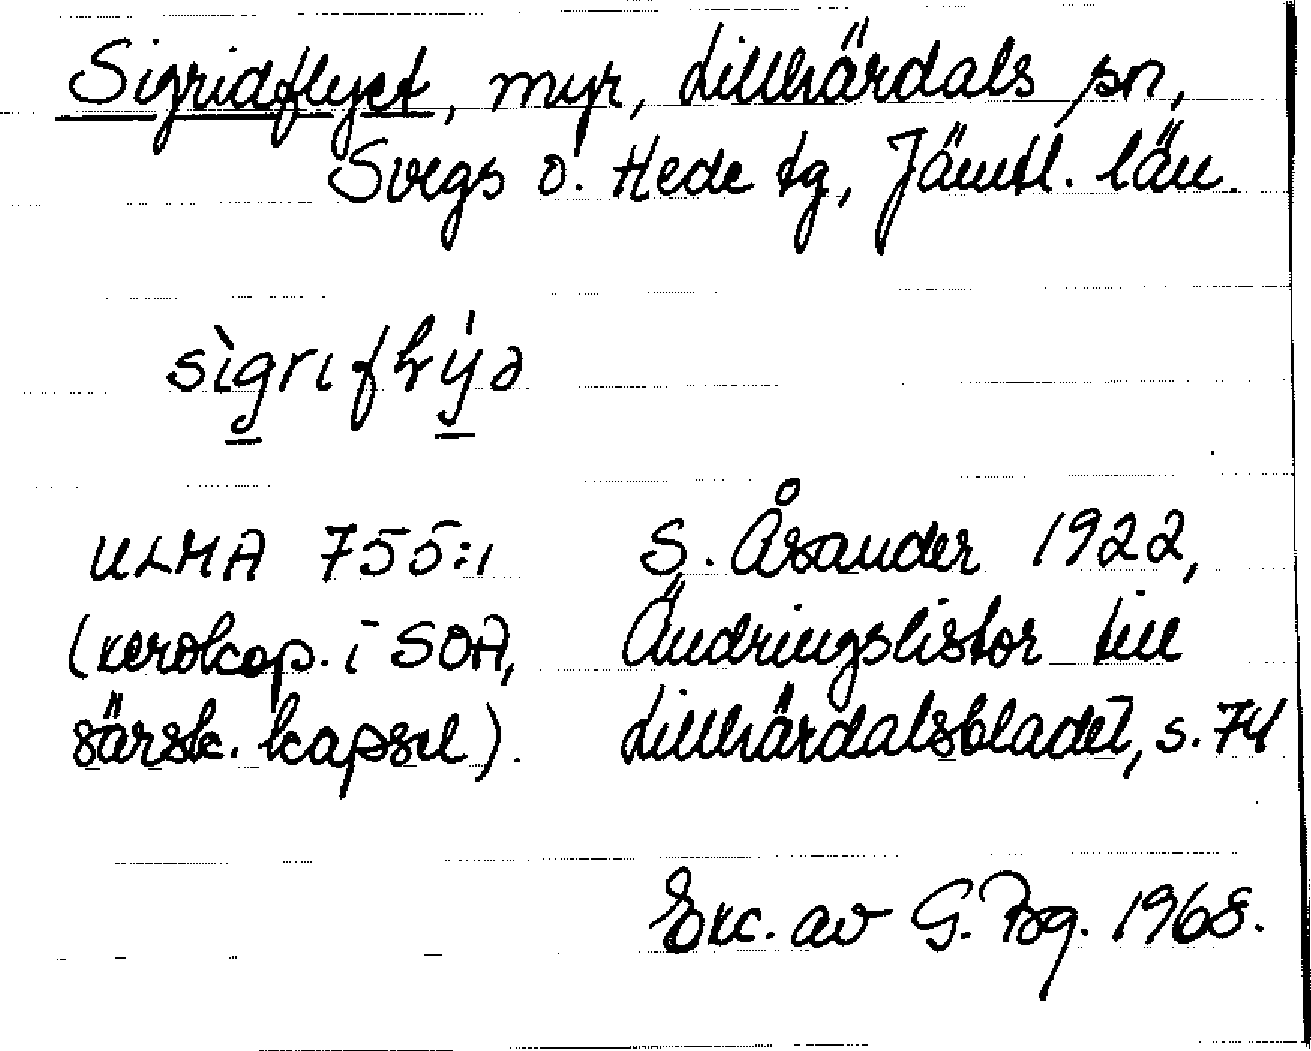 Sigridflyet, myr, Lillhärdals sn,
Svegs o. Hede tg, Jämtl. län.
sìgrifl̥ýə
ULMA 755:1
(xerokop. i SOA,
särsk. kapsel).
S. Åsander 1922,
Ändringslistor till
Lillhärdalsbladet, s. 74
Exc. av G. Bg. 1968.